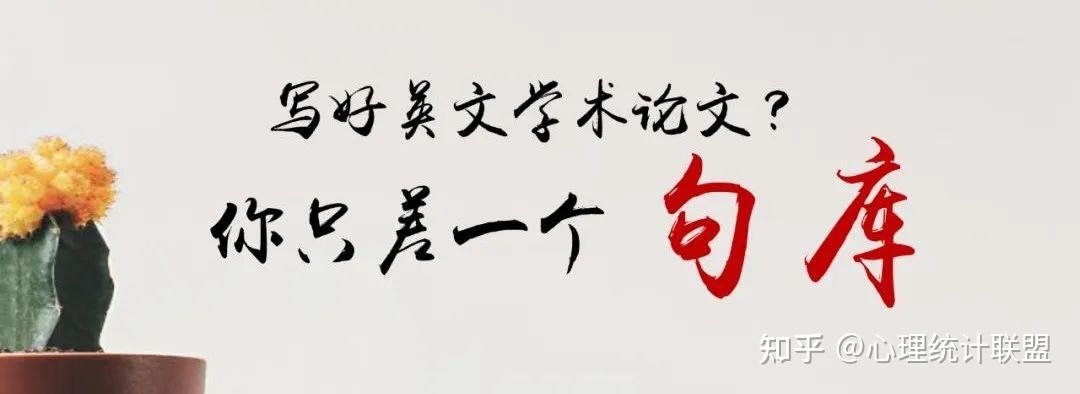 写好英文学术论文？
你只差一个 句库
知乎 @心理统计联盟